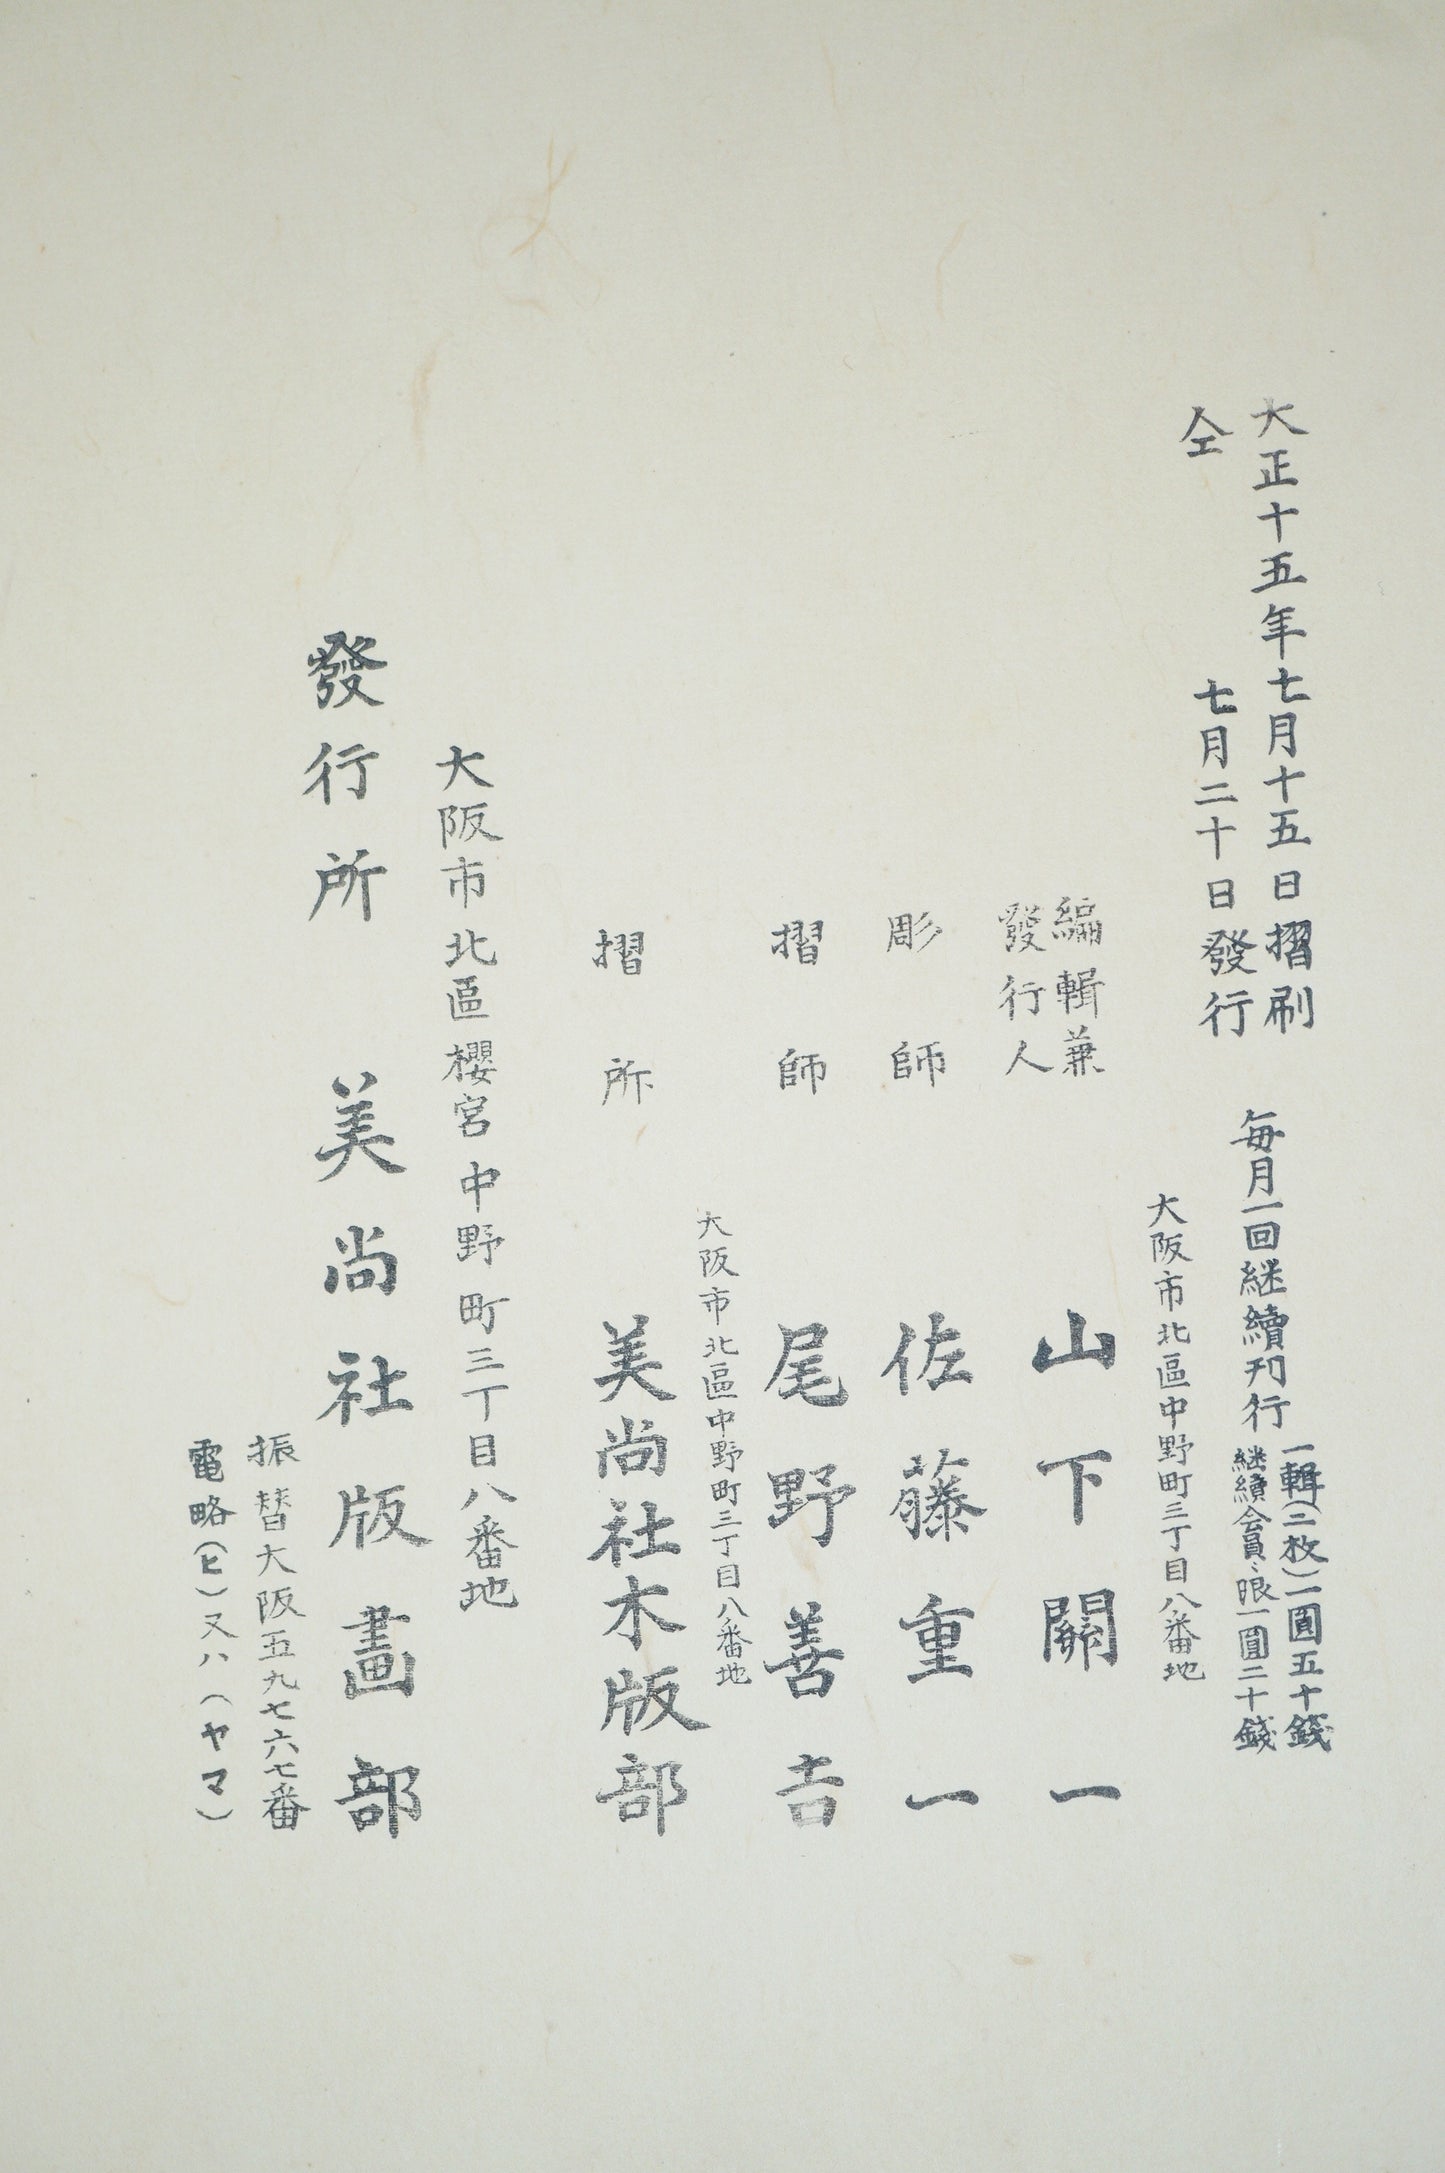 大正十五年七月十五日摺刷
仝 七月二十日發行
毎月一回継續刊行
一輯(二枚)一圓五十錢
継續會員ニ限一圓二十錢
大阪市北區中野町三丁目八番地
編輯兼
發行人
山下關一
彫師 佐藤重一
摺師 尾野善吉
大阪市北區中野町三丁目八番地
摺所 美尚社木版部
大阪市北區櫻宮中野町三丁目八番地
發行所 美尚社版畫部
振替大阪五九七六七番
電略(ヒ)又ハ(ヤマ)